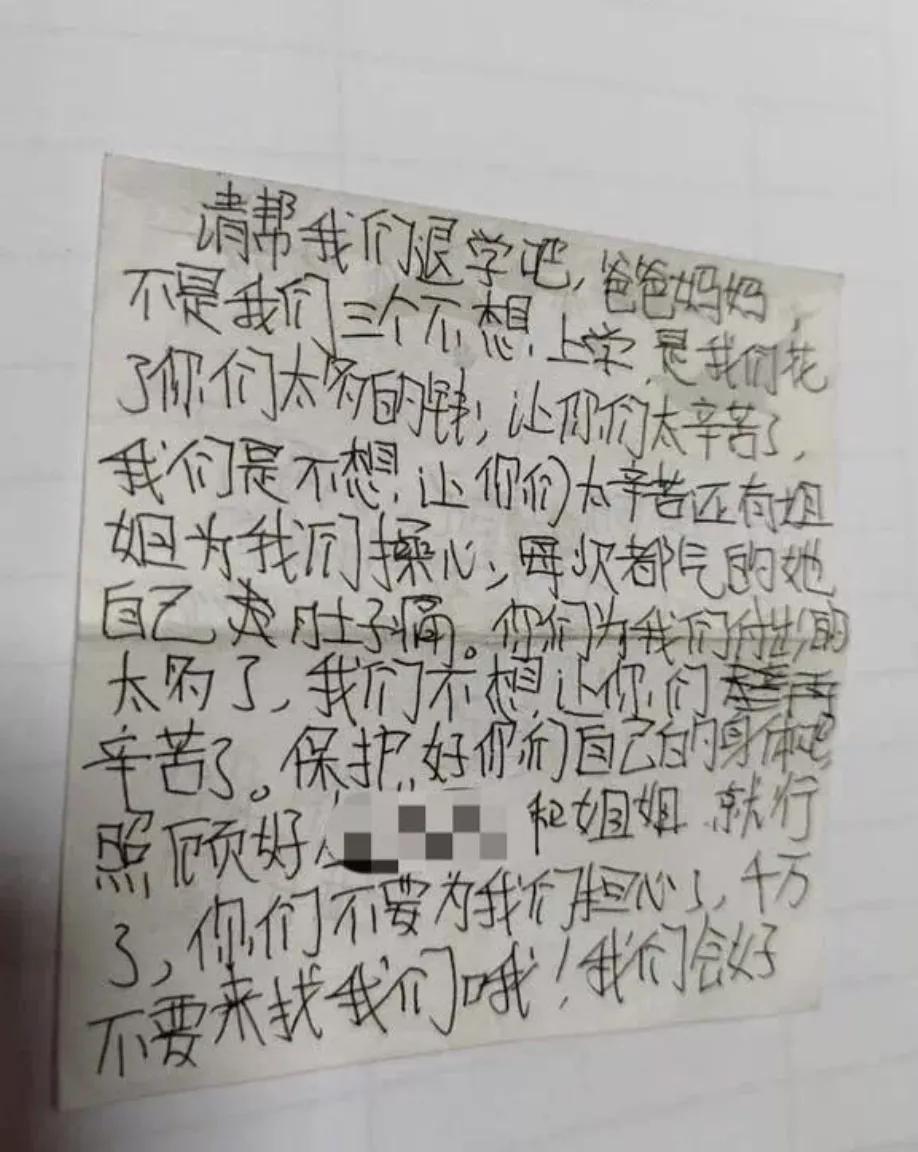 请帮我们退学吧，爸爸妈妈，
不是我们三个不想上学是我们花
了你们太多的钱，让你们太辛苦了，
我们是不想让你们太辛苦还有姐
姐为我们操心，每次都气的她
自己 肚子痛。你们为我们付出的
太多了，我们不想让你们
辛苦了。保护好你们自己的身体吧，
照顾好 和姐姐就行
了，你们不要为我们担心了，千万
不要来找我们哦！我们会好